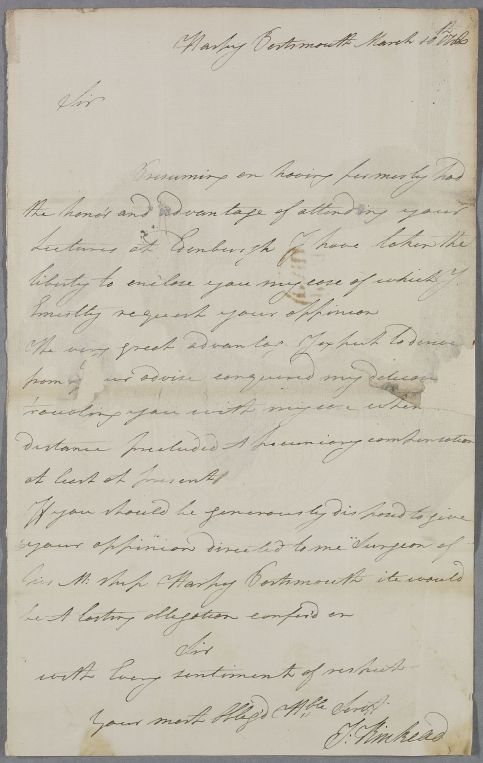 Harpy Portsmouth March 10th
Sir
Presuming on having formerly had
the honor and advantage of attending your
Lectures at Edenburgh I have taken the
liberty to enclose you my case of which I
Ernestly request your oppinion
The very great advantag I expect to derive
from your advise conquered my delicacy
troubling you with my case when
distance precluded A pecuniary compensation
at least at present
If you should be generously disposed to give
your oppinion directed to me Surgeon of
his M. ship Harpy Portsmouth it would
be A lasting obligation confer'd on
Sir
with Every sentiment of respect
your most oblig'd Hble Servt
J: Kinkead